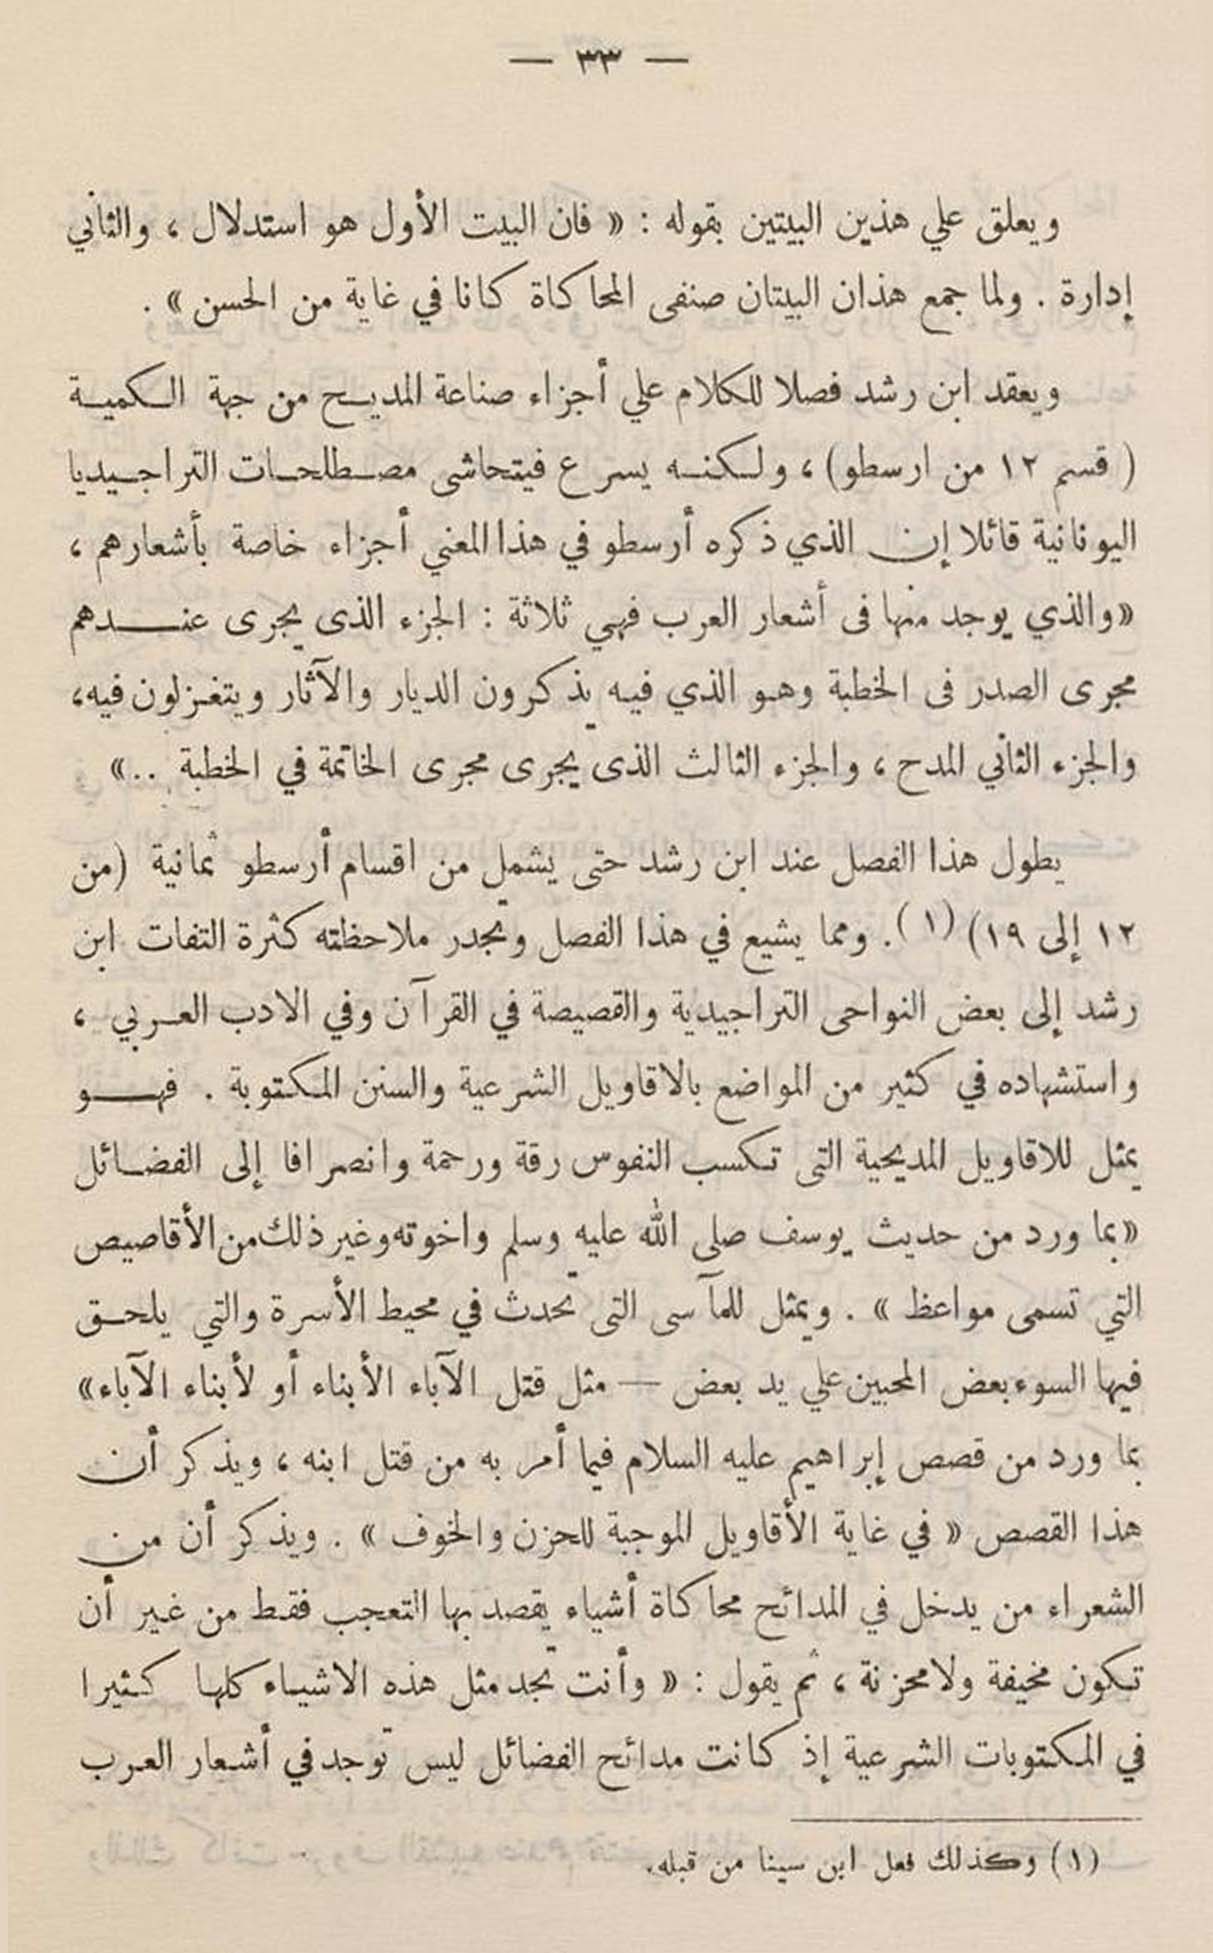 — ٣٣ —
ويعلق علي هذين البيتين بقوله : « فان البيت الأول هو استدلال ، والثاني
إدارة . ولما جمع هذان البيتان صنفى المحاكاة كانا في غاية من الحسن » .
ويعقد ابن رشد فصلا للكلام علي أجزاء صناعة المديح من جهة الكمية
( قسم ١٢ من ارسطو) ، ولكنه يسرع فيتحاشى مصطلحات التراجيديا
اليونانية قائلا إن الذي ذكره أرسطو في هذا المعني أجزاء خاصة بأشعارهم ،
«والذي يوجد منها فى أشعار العرب فهي ثلاثة : الجزء الذى يجرى عندهم
مجرى الصدر فى الخطبة وهو الذي فيه يذكرون الديار والآثار ويتغزلون فيه،
والجزء الثاني المدح ، والجزء الثالث الذى يجرى مجرى الخاتمة في الخطبة ..»
يطول هذا الفصل عند ابن رشد حتى يشمل من اقسام أرسطو ثمانية (من
١٢ إلى ١٩) (١). ومما يشيع في هذا الفصل وتجدر ملاحظته كثرة التفات ابن
رشد إلى بعض النواحى التراجيدية والقصيصة في القرآن وفي الادب العربي ،
واستشهاده في كثير من المواضع بالاقاويل الشرعية والسنن المكتوبة . فهو
يمثل للاقاويل المديحية التى تكسب النفوس رقة ورحمة وانصرافا إلى الفضائل
«بما ورد من حديث يوسف صلى الله عليه وسلم واخوته وغير ذلك من الأقاصيص
التي تسمى مواعظ » . ويمثل للمآسى التى تحدث في محيط الأسرة والتي يلحق
فيها السوء بعض المحبين علي يد بعض — مثل قتل الآباء الأبناء أو لأبناء الآباء»
بما ورد من قصص إبراهيم عليه السلام فيما أمر به من قتل ابنه ، ويذكر أن
هذا القصص « في غاية الأقاويل الموجبة للحزن والخوف » . ويذكر أن من
الشعراء من يدخل في المدائح محاكاة أشياء يقصد بها التعجب فقط من غير أن
تكون مخيفة ولا محزنة ، ثم يقول : « وأنت تجد مثل هذه الاشياء كلها كثيرا
في المكتوبات الشرعية إذ كانت مدائح الفضائل ليس توجد في أشعار العرب
(١) وكذلك فعل ابن سينا من قبله.